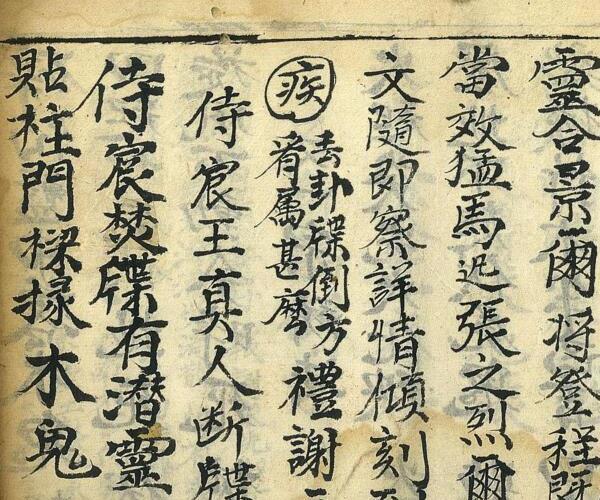 靈合景爾将登程
當效猛馬迅張之烈爾
文隨即察詳情傾刻
疾
去卦牒倒方
看属甚麽
禮謝
侍宸王真人断牒
侍宸焚牒有潜靈
貼柱門樑掾木鬼